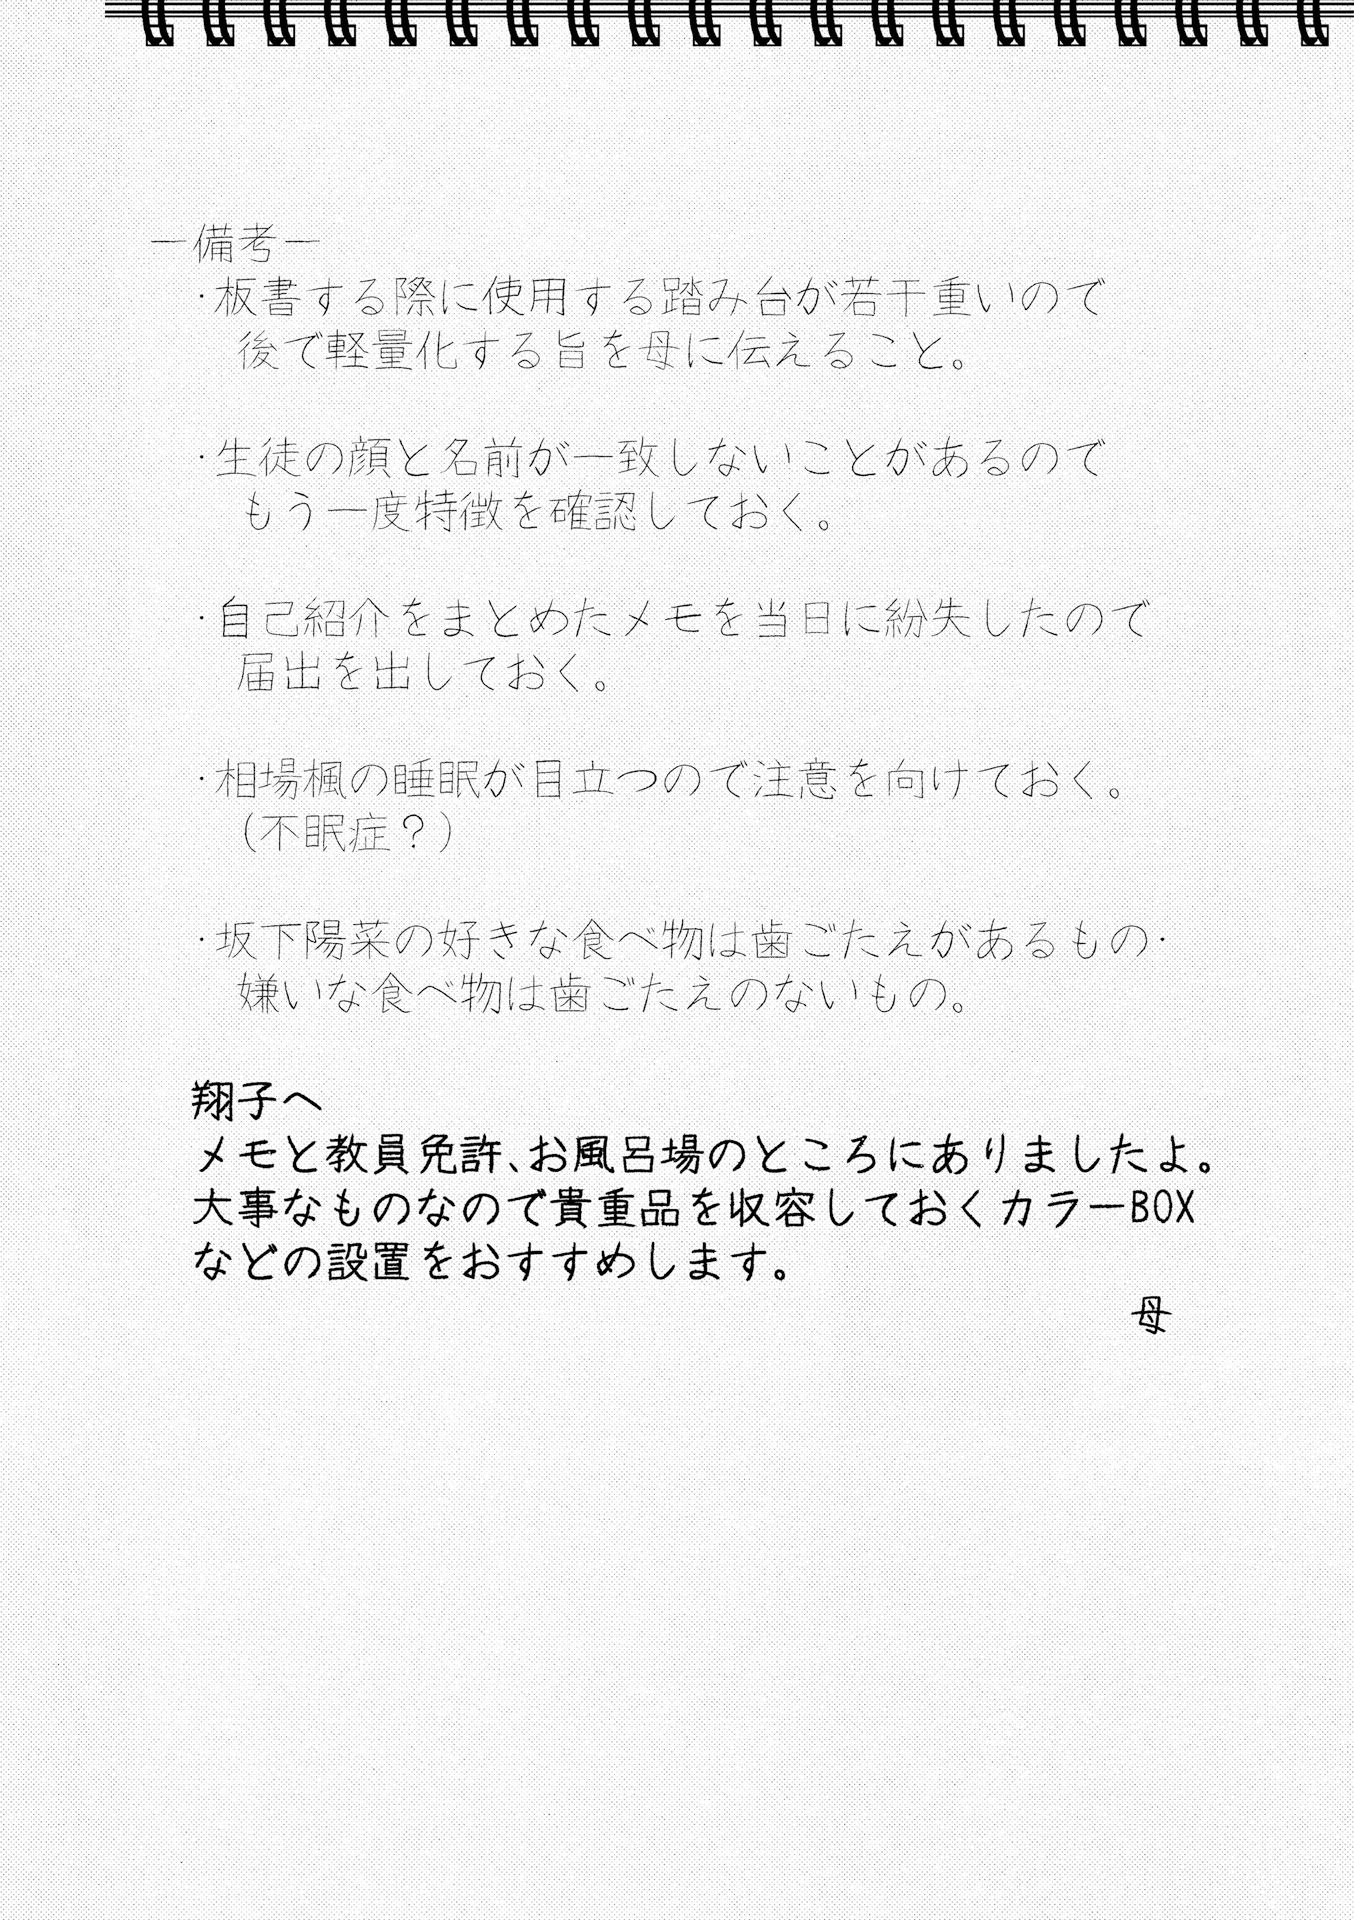 ―備考―
・板書する際に使用する踏み台が若干重いので
後で軽量化する旨を母に伝えること。
・生徒の顔と名前が一致しないことがあるので
もう一度特徴を確認しておく。
・自己紹介をまとめたメモを当日に紛失したので
届出を出しておく。
・相場楓の睡眠が目立つので注意を向けておく。
(不眠症?)
・坂下陽菜の好きな食べ物は歯ごたえがあるもの・
嫌いな食べ物は歯ごたえのないもの。
翔子へ
メモと教員免許、お風呂場のところにありましたよ。
大事なものなので貴重品を収容しておくカラーBOX
などの設置をおすすめします。
母